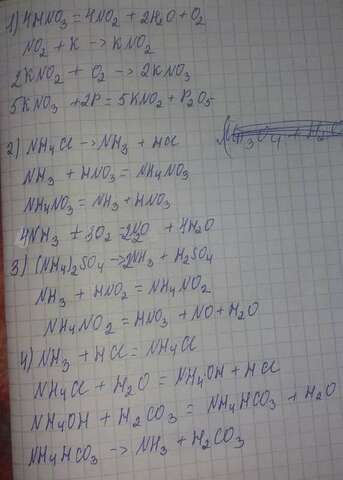 1) 4HNO₃ = 4NO₂ + 2H₂O + O₂
NO₂ + K -> KNO₂
2KNO₂ + O₂ -> 2KNO₃
5KNO₃ + 2P = 5KNO₂ + P₂O₅
2) NH₄Cl -> NH₃ + HCl
NH₃ + HNO₃ = NH₄NO₃
NH₄NO₃ = NH₃ + HNO₃
4NH₃ + 3O₂ = + 4H₂O
3) (NH₄)₂SO₄ -> 2NH₃ + H₂SO₄
NH₃ + HNO₂ = NH₄NO₂
NH₄NO₂ = HNO₃ + NO + H₂O
4) NH₃ + HCl = NH₄Cl
NH₄Cl + H₂O = NH₄OH + HCl
NH₄OH + H₂CO₃ = NH₄HCO₃ + H₂O
NH₄HCO₃ -> NH₃ + H₂CO₃